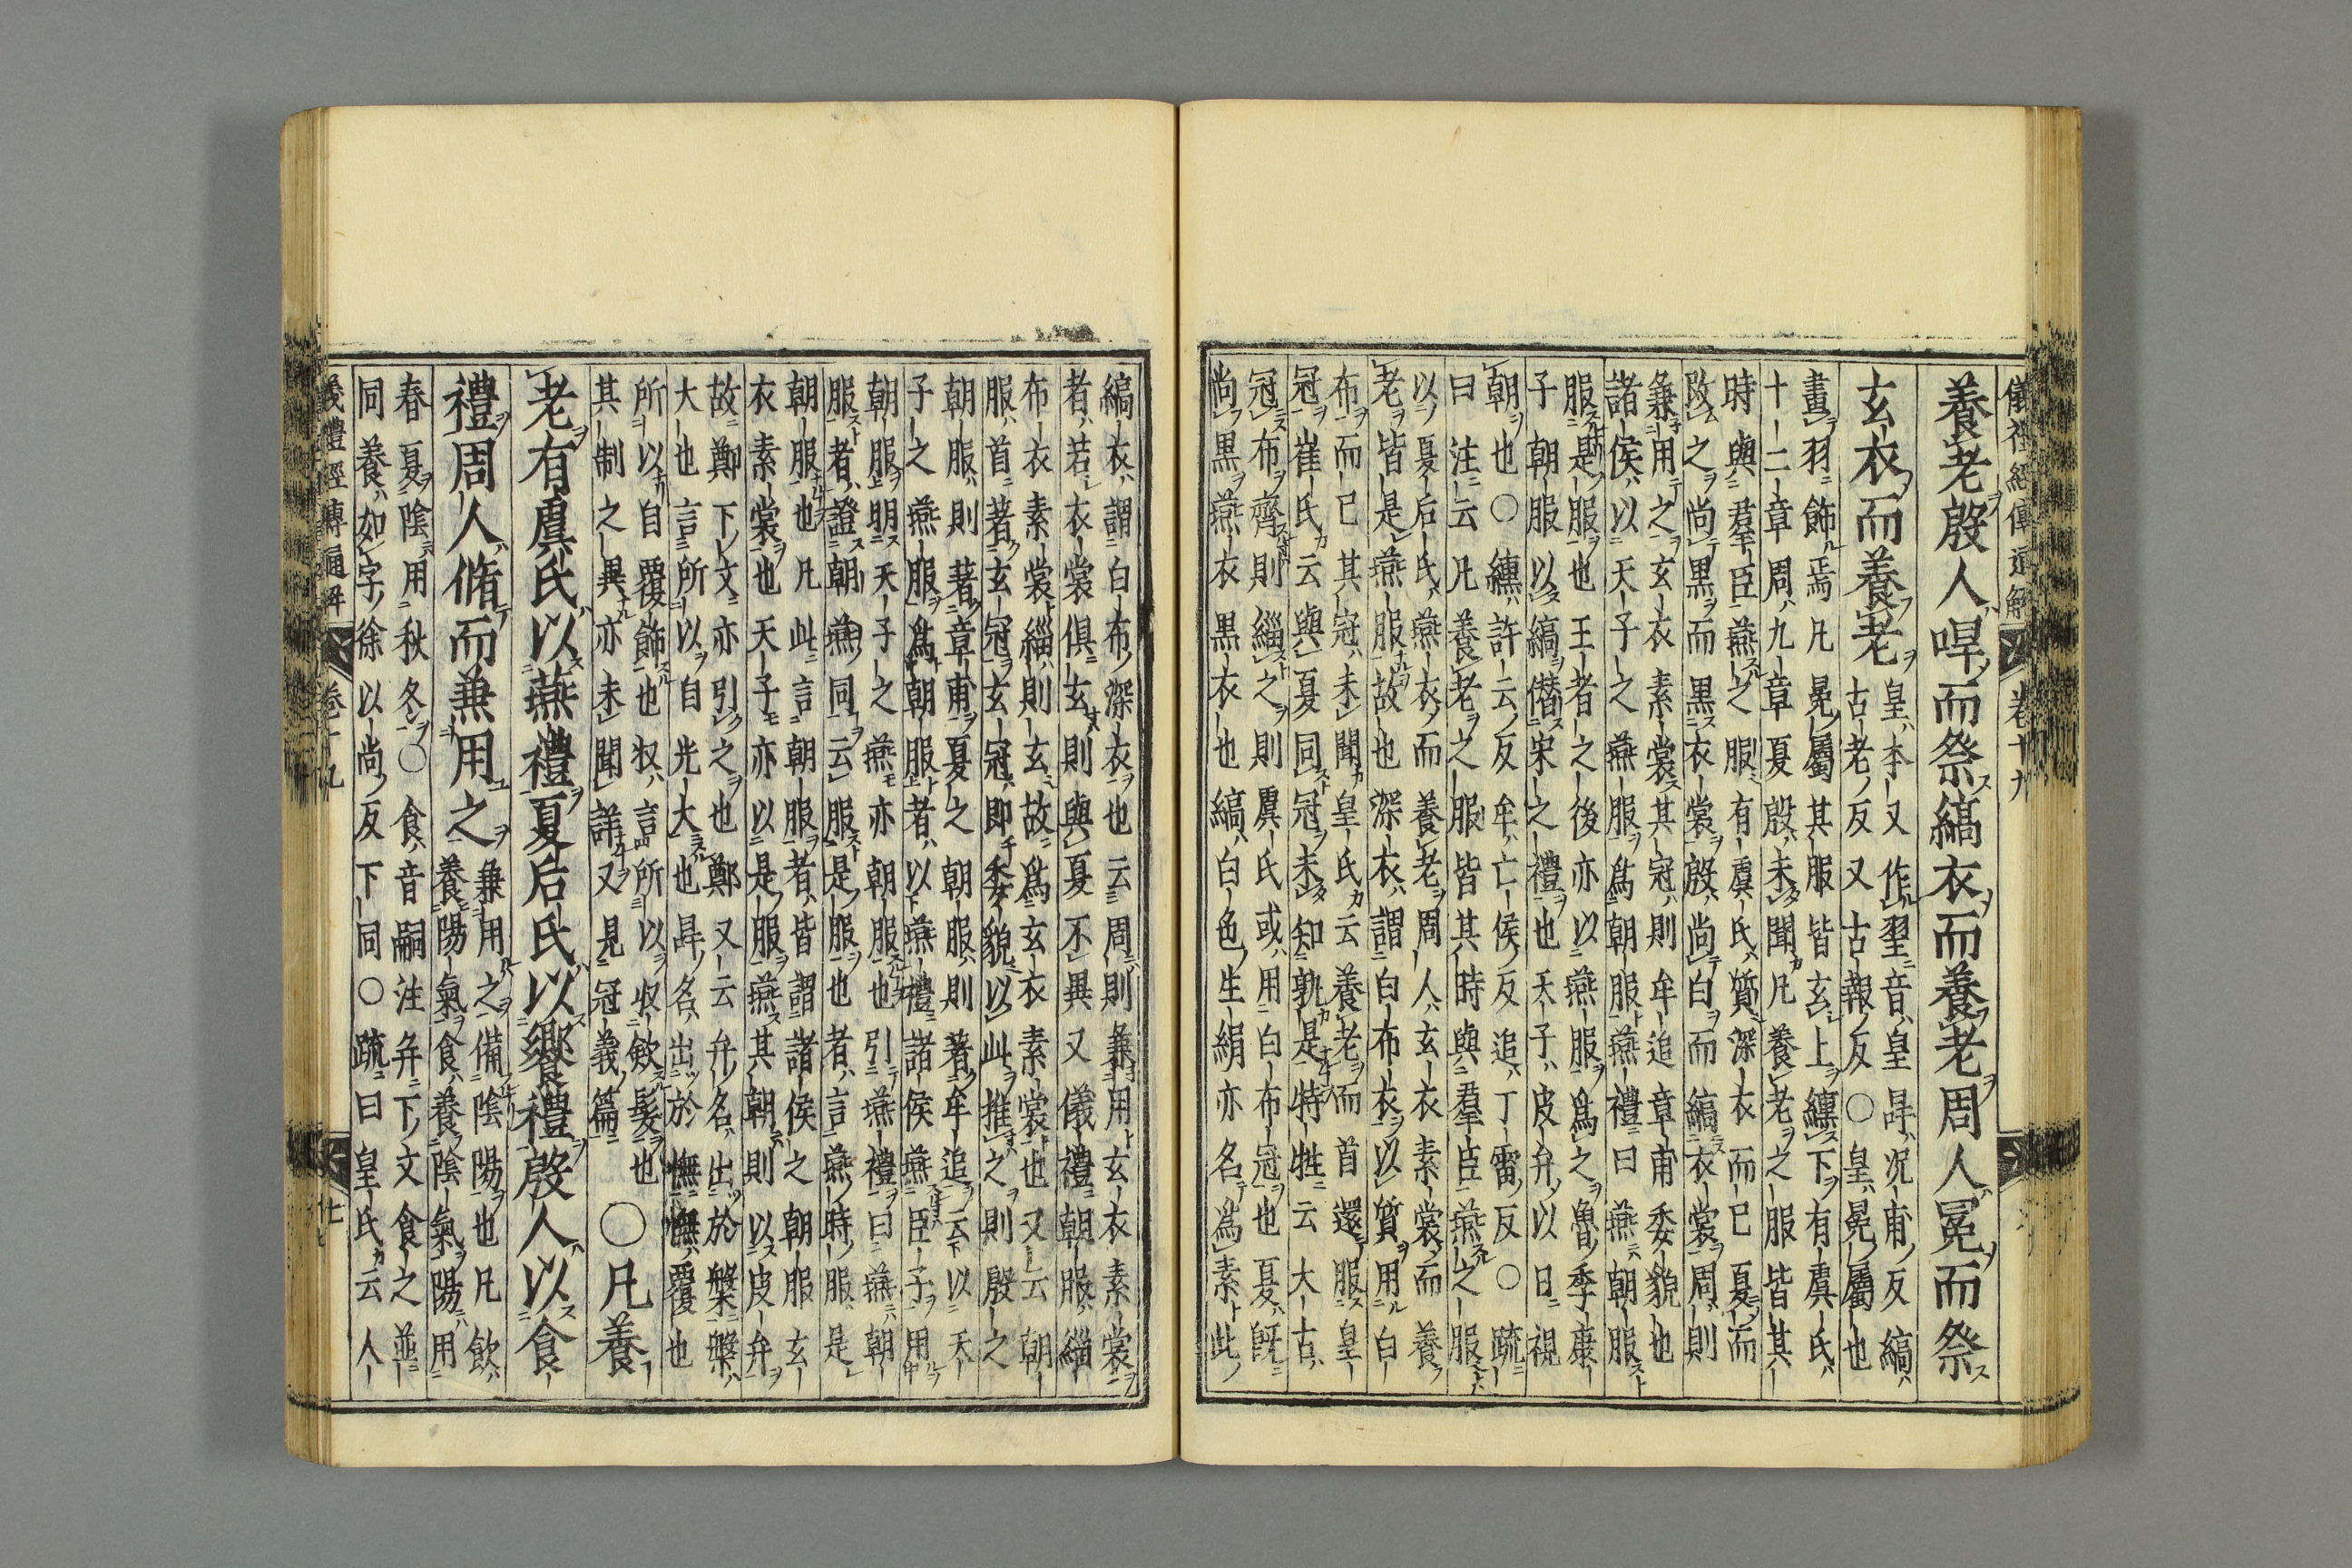 儀禮經傳通解 卷十九
養老殷人哻而祭縞衣而養老周人冕而祭
玄衣而養老
皇本又作䍿音皇哻况甫反縞
古老反又古報反○皇冕屬也
畫羽飾焉凡冕屬其服皆玄上纁下有虞氏
十二章周九章夏殷未聞凡養老之服皆其
時與羣臣燕之服有虞氏質深衣而已夏而
改之尚黑而黑衣裳殷尚白而縞衣裳周則
兼用之玄衣素裳其冠則牟追章甫委貌也
諸侯以天子之燕服爲朝服燕禮曰燕朝服
服是服也王者之後亦以燕服爲之魯季康
子朝服以縞僭宋之禮也天子皮弁以日視
朝也○纁許云反牟亡侯反追丁雷反○疏
曰注云凡養老之服皆其時與羣臣燕之服
以夏后氏燕衣而養老周人玄衣素裳而養
老皆是燕服故也深衣謂白布衣以質用白
布而已其冠未聞皇氏云養老而首還服皇
冠崔氏云與夏同冠未知孰是特牲云大古
冠布齊則緇之則虞氏或用白布冠也夏既
尚黑燕衣黑衣也縞白色生絹亦名爲素此
縞衣謂白布深衣也云周則兼用玄衣素裳
者若衣裳俱玄則與夏不異又儀禮朝服緇
布衣素裳緇則玄故爲玄衣素裳也又云朝
服首著玄冠玄冠即委貌以此推之則殷之
朝服則著章甫夏之朝服則著牟追云以天
子之燕服爲朝服者以燕禮諸侯燕臣子用
朝服明天子之燕亦朝服也引燕禮曰燕朝
服者證朝燕同云服是服也者言燕時服是
朝服也凡此言朝服者皆謂諸侯之朝服玄
衣素裳也天子亦以是服燕其朝則以皮弁
故鄭下文亦引之也鄭又云弁名出於槃槃
大也言所以自光大也冔名出於幠幠覆也
所以自覆飾也收言所以收斂髮也
其制之異亦未聞詳又見冠義篇○凡養
老有虞氏以燕禮夏后氏以饗禮殷人以食
禮周人脩而兼用之
兼用之備陰陽也凡飲
養陽氣食養陰氣陽用
春夏陰用秋冬○食音嗣注弁下文食之並
同養如字徐以尚反下同○疏曰皇氏云人
儀禮經傳通解 卷十九